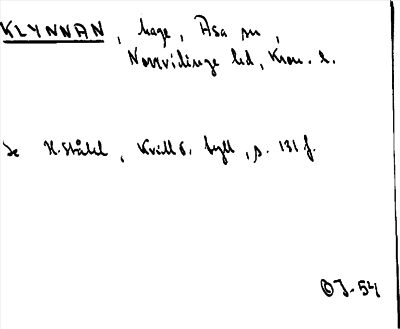 KLYNNAN, hage, Asa sn,
Norrvidinge hd, Kron. l.
Se H. Ståhl, Kvill o. byll, s. 131 f.
OJ-54